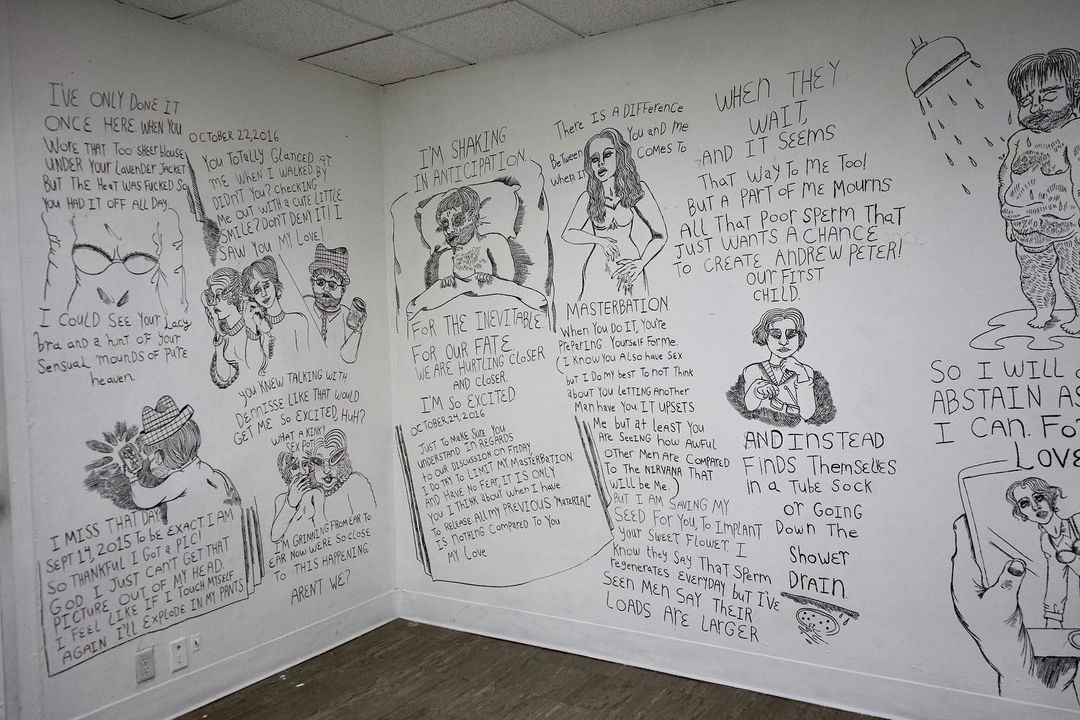 I'VE ONLY DONE IT
ONCE HERE. WHEN YOU
WORE THAT TOO SHEER BLOUSE
UNDER YOUR LAVENDER JACKET
BUT THE HEAT WAS FUCKED SO
YOU HAD IT OFF ALL DAY.
I COULD SEE YOUR Lacy
bra and a hint of your
Sensual mounds of pure
heaven.
I MISS THAT DAY
SEPT 14, 2015 TO BE EXACT I AM
SO THANKFUL I GOT A PIC!
GOD I JUST CAN'T GET THAT
PICTURE OUT OF MY HEAD.
I FEEL LIKE IF I TOUCH MYSELF
AGAIN I'LL EXPLODE IN MY PANTS
OCTOBER 22, 2016
YOU TOTALLY GLANCED AT
ME WHEN I WALKED BY
DIDN'T YOU? CHECKING
ME OUT WITH A CUTE LITTLE
SMILE? DON'T DENY IT! I
SAW YOU MY LOVE.
YOU KNEW TALKING WITH
DENNISSE LIKE THAT WOULD
GET ME SO EXCITED, HUH?
WHAT A KINKY
SEX POT
I'M GRINNING FROM EAR TO
EAR NOW. WE'RE SO CLOSE
TO THIS HAPPENING.
AREN'T WE?
I'M SHAKING
IN ANTICIPATION.
FOR THE INEVITABLE.
FOR OUR FATE
WE ARE HURTLING CLOSER
AND CLOSER.
I'M SO EXCITED
OCTOBER 24, 2016
JUST TO MAKE SURE YOU
UNDERSTAND IN REGARDS
TO OUR DISCUSSION ON FRIDAY.
I DO TRY TO LIMIT MY MASTERBATION.
AND HAVE NO FEAR, IT IS ONLY
YOU I THINK ABOUT WHEN I HAVE
TO RELEASE. ALL MY PREVIOUS "MATERIAL"
IS NOTHING COMPARED TO YOU
MY LOVE
There IS A DIFFerence
Between You and me
when IT COMES TO
MASTERBATION.
When You Do IT, You're
Preparing Yourself For me.
(I know You Also have Sex
but I Do my Best To not Think
about You Letting Another
Man have You IT UPSETS
Me but at least You
Are Seeing how AWFUL
other Men are Compared
To The NIRVANA That
will be Me.)
BUT I AM SAVING MY
SEED FOR YOU, TO IMPLANT
Your SWEET FLOWER. I
Know they Say That Sperm
regenerates everyday but I've
Seen Men Say Their
LOADS ARE LARGER
WHEN THEY
WAIT,
AND IT SEEMS
That Way To Me Too!
BUT A PART OF ME Mourns
All That Poor Sperm That
JUST WANTS A CHANCE
TO CREATE ANDREW PETER!
OUR FIRST
CHILD.
AND INSTEAD
FINDS THEMSELVES
in a TUBE SOCK
or Going
Down The
Shower
Drain.
SO I WILL
ABSTAIN AS
I CAN.
LOVE